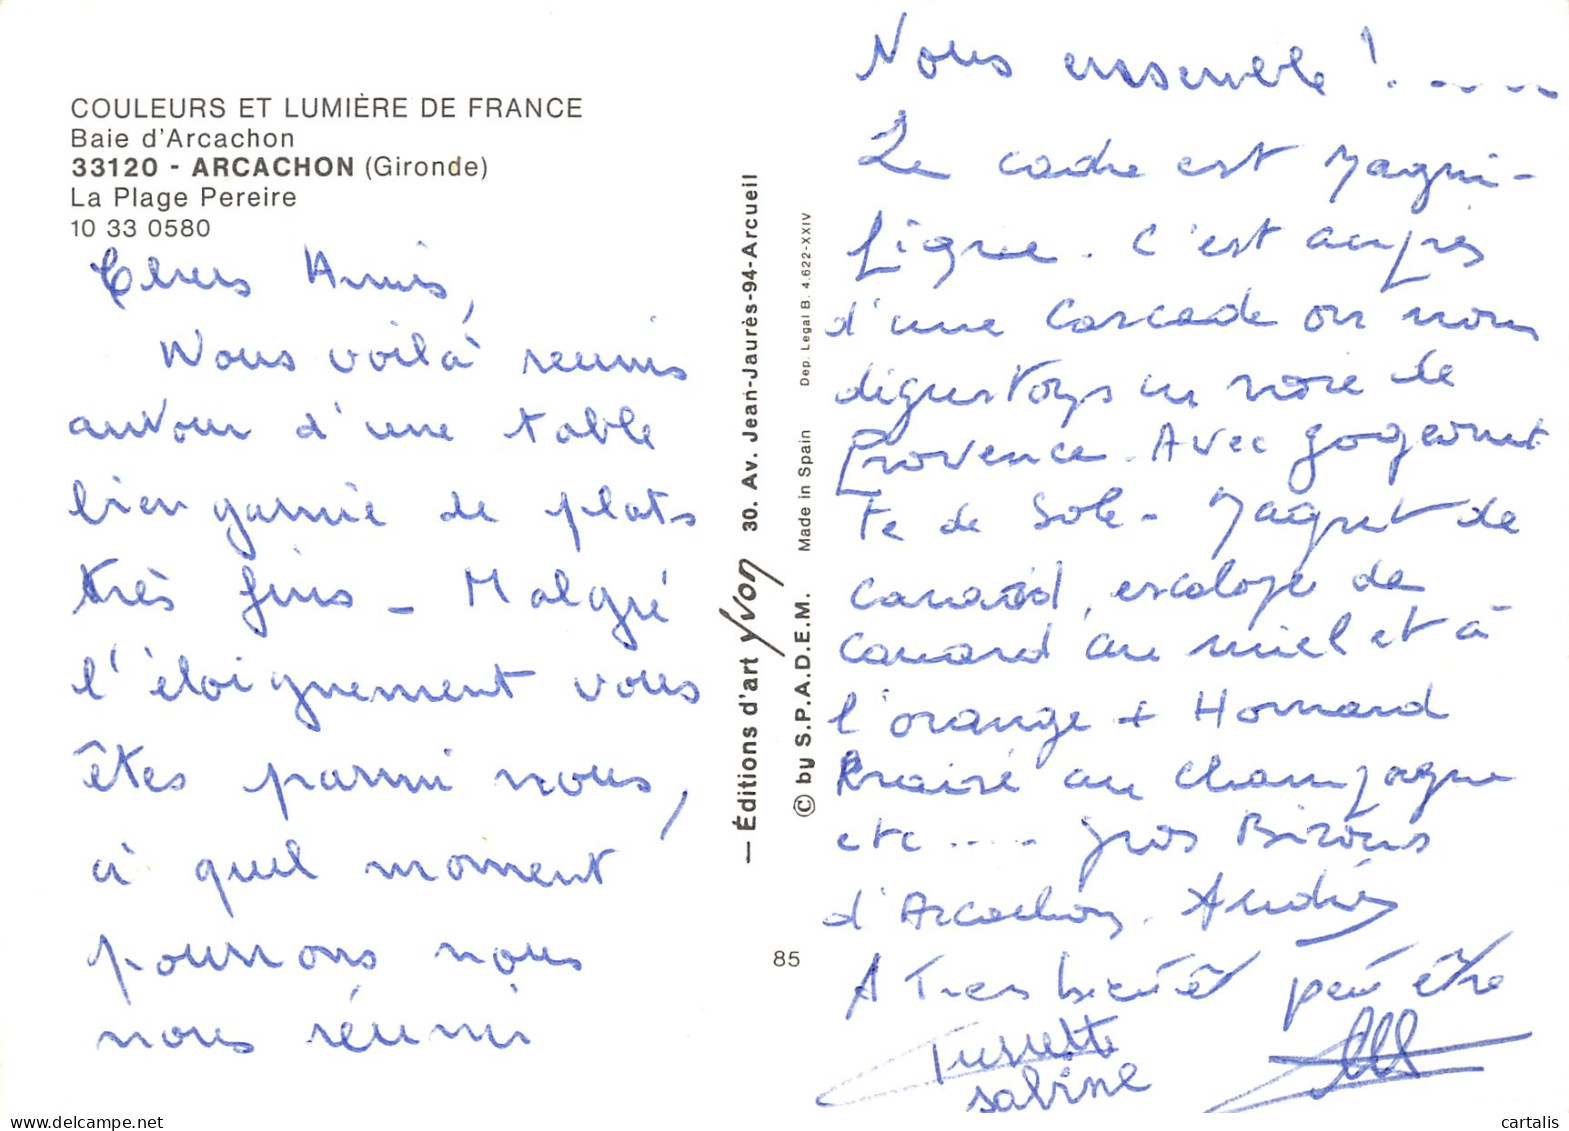 COULEURS ET LUMIÈRE DE FRANCE
Baie d'Arcachon
33120 - ARCACHON (Gironde)
La Plage Pereire
10 33 0580
Chers Amis,
Nous voilà reunis
autour d'une table
bien garnie de plats
très fins - Malgré
l'éloignement vous
êtes parmi nous,
à quel moment
pourrons nous
nous réunir
— Éditions d'art yvon 30. Av. Jean-Jaurès-94-Arcueil
© by S.P.A.D.E.M. Made in Spain Dep. Legal B. 4.622-XXIV
85
Nous ensemble !....
Le cadre est Magni-
fique. C'est auprès
d'une Cascade on nous
digustons un rose de
Provence. Avec
de Sole - Magret de
canard, escalope de
canard au miel et à
l'orange + Homard
au champagne
etc .... gros Bizous
d'Arcachon. Andrée
A Tres bientôt peu être
sabine
cartalis.com